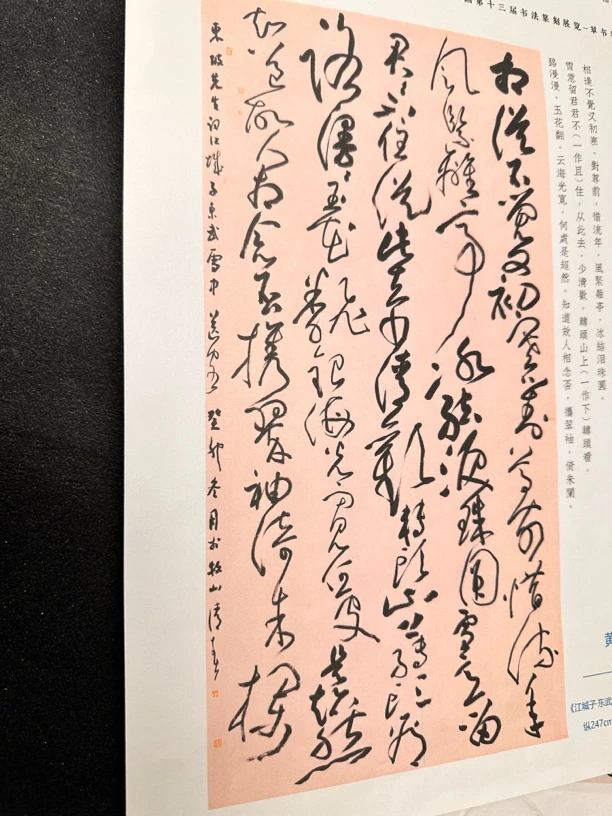 国第十三届书法篆刻展览-草书
相逢不覺又初寒。對尊前。惜流年。風緊離亭。冰結泪珠圓。
雪意留君君不(一作且)住。从此去,少清歡。轉頭山上(一作下)轉頭看。
路漫漫。玉花翻。云海光寬。何處是超然。知道故人相念否。攜翠袖。倚朱闌。
相從不覺又初寒對尊前惜流年
風緊離亭冰結淚珠圓雪意留
君不住從此去少清歡轉頭山
路漫漫玉花翻銀海光寬何處是超然
知道故人相念否携翠袖倚朱欄
東坡先生詞江城子東武雪中送客 癸卯冬月於牧山清
黄
《江城子·东武
纵247cm